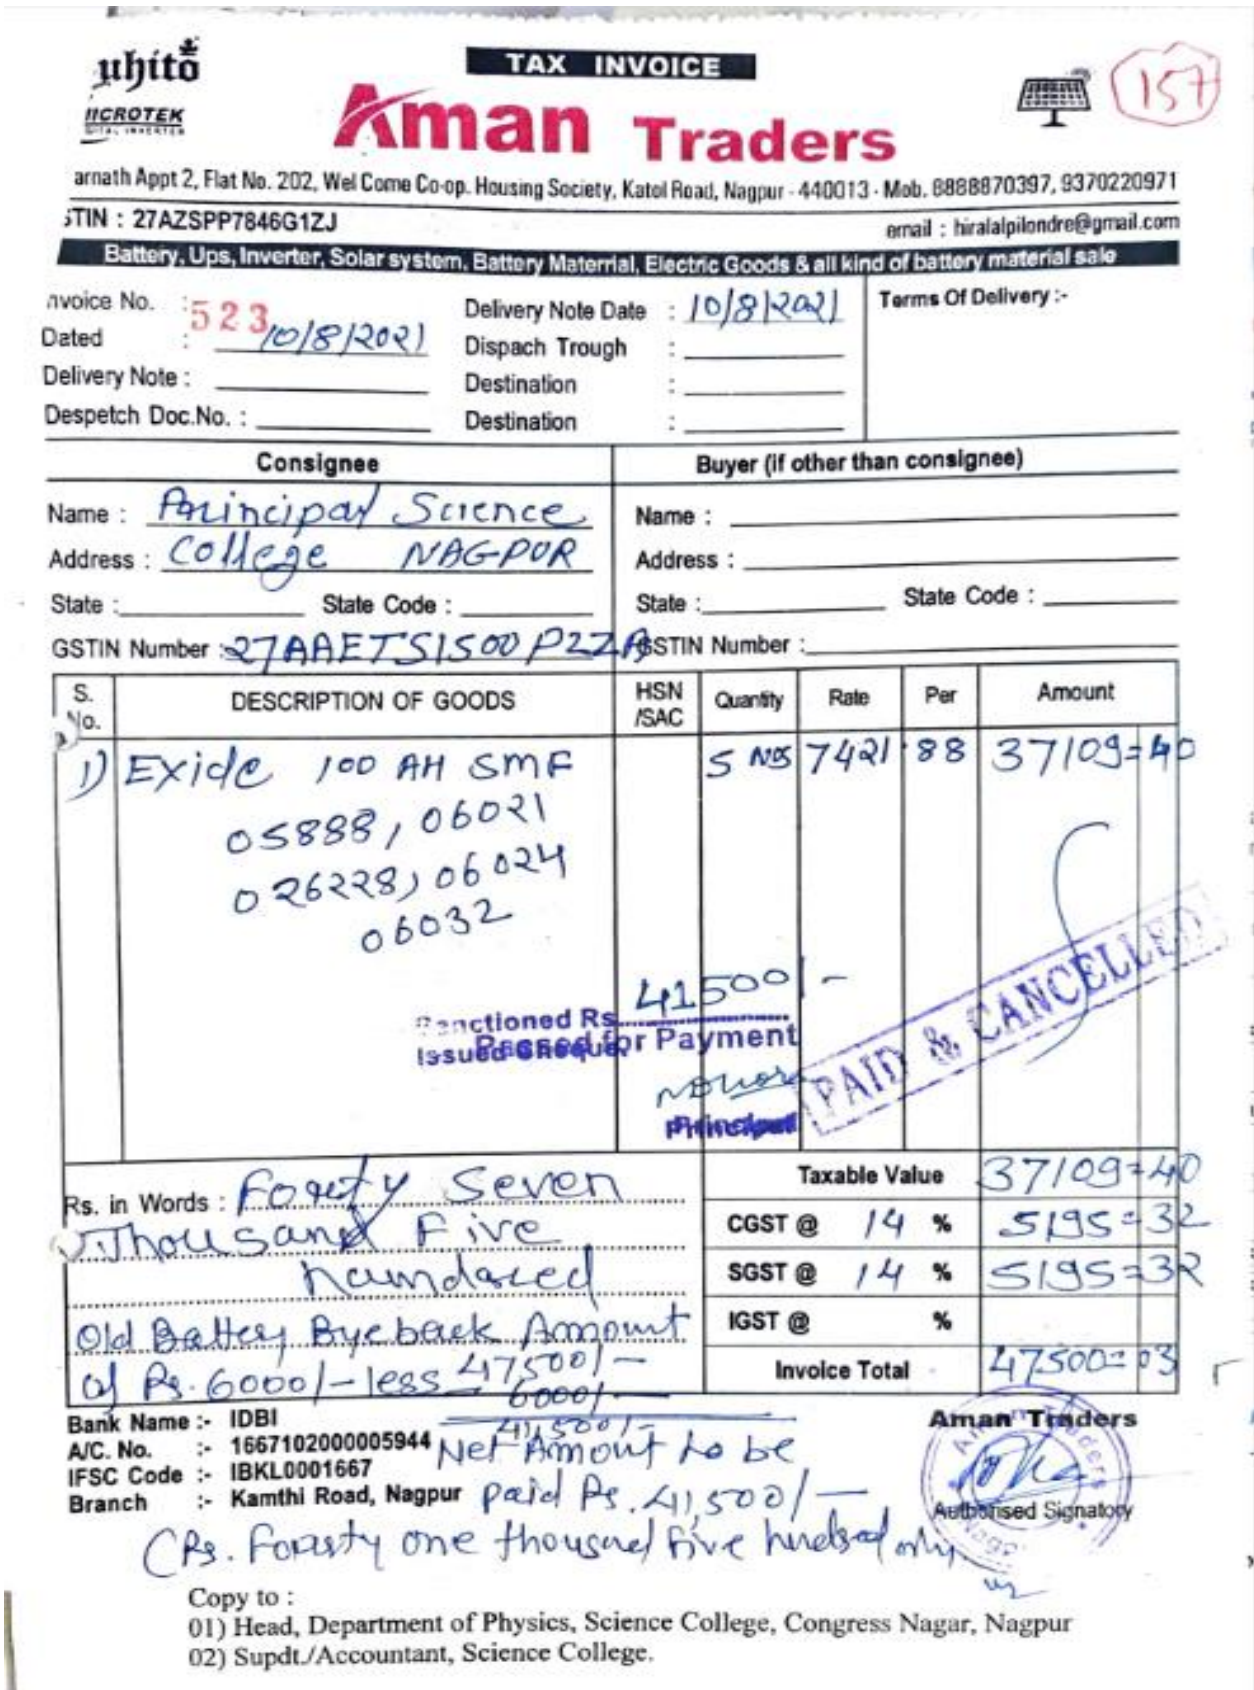 TAX INVOICE
157
uhito
MICROTEK
Aman Traders
arnath Appt 2, Flat No. 202, Wel Come Co-op. Housing Society, Katol Road, Nagpur - 440013 - Mob. 8888870397, 9370220971
STIN : 27AZSPP7846G1ZJ
email : hiralalpilondre@gmail.com
Battery, Ups, Inverter, Solar system, Battery Material, Electric Goods & all kind of battery material sale
nvoice No. : 523
Dated : 10/8/2021
Delivery Note :
Despetch Doc.No. :
Delivery Note Date : 10/8/2021
Dispach Trough :
Destination :
Destination :
Terms Of Delivery :-
Consignee
Name : Principal Science
Address : College NAGPUR
State : State Code :
GSTIN Number : 27AAETS1500PZZA
Buyer (if other than consignee)
Name :
Address :
State : State Code :
GSTIN Number :
S. No. DESCRIPTION OF GOODS HSN /SAC Quantity Rate Per Amount
1) Exide 100 AH SMF 5 Nos 7421.88 37109=40
05888, 06021
026228, 06024
06032
Sanctioned Rs 41500/-
Issued Cheque
Passed for Payment
Principal
PAID & CANCELLED
Taxable Value 37109=40
CGST @ 14 % 5195=32
SGST @ 14 % 5195=32
IGST @ %
Invoice Total 47500=03
Rs. in Words : Foruty Seven
Thousand Five
hundared
Old Battery Byeback Amount
of Rs. 6000/- less 47500/-
6000/-
41,500/-
Bank Name :- IDBI
A/C. No. :- 1667102000005944
IFSC Code :- IBKL0001667
Branch :- Kamthi Road, Nagpur
Net Amount to be
paid Rs. 41,500/-
(Rs. Forty one thousand five hundred only
Aman Traders
Authorised Signatory
Copy to :
01) Head, Department of Physics, Science College, Congress Nagar, Nagpur
02) Supdt./Accountant, Science College.